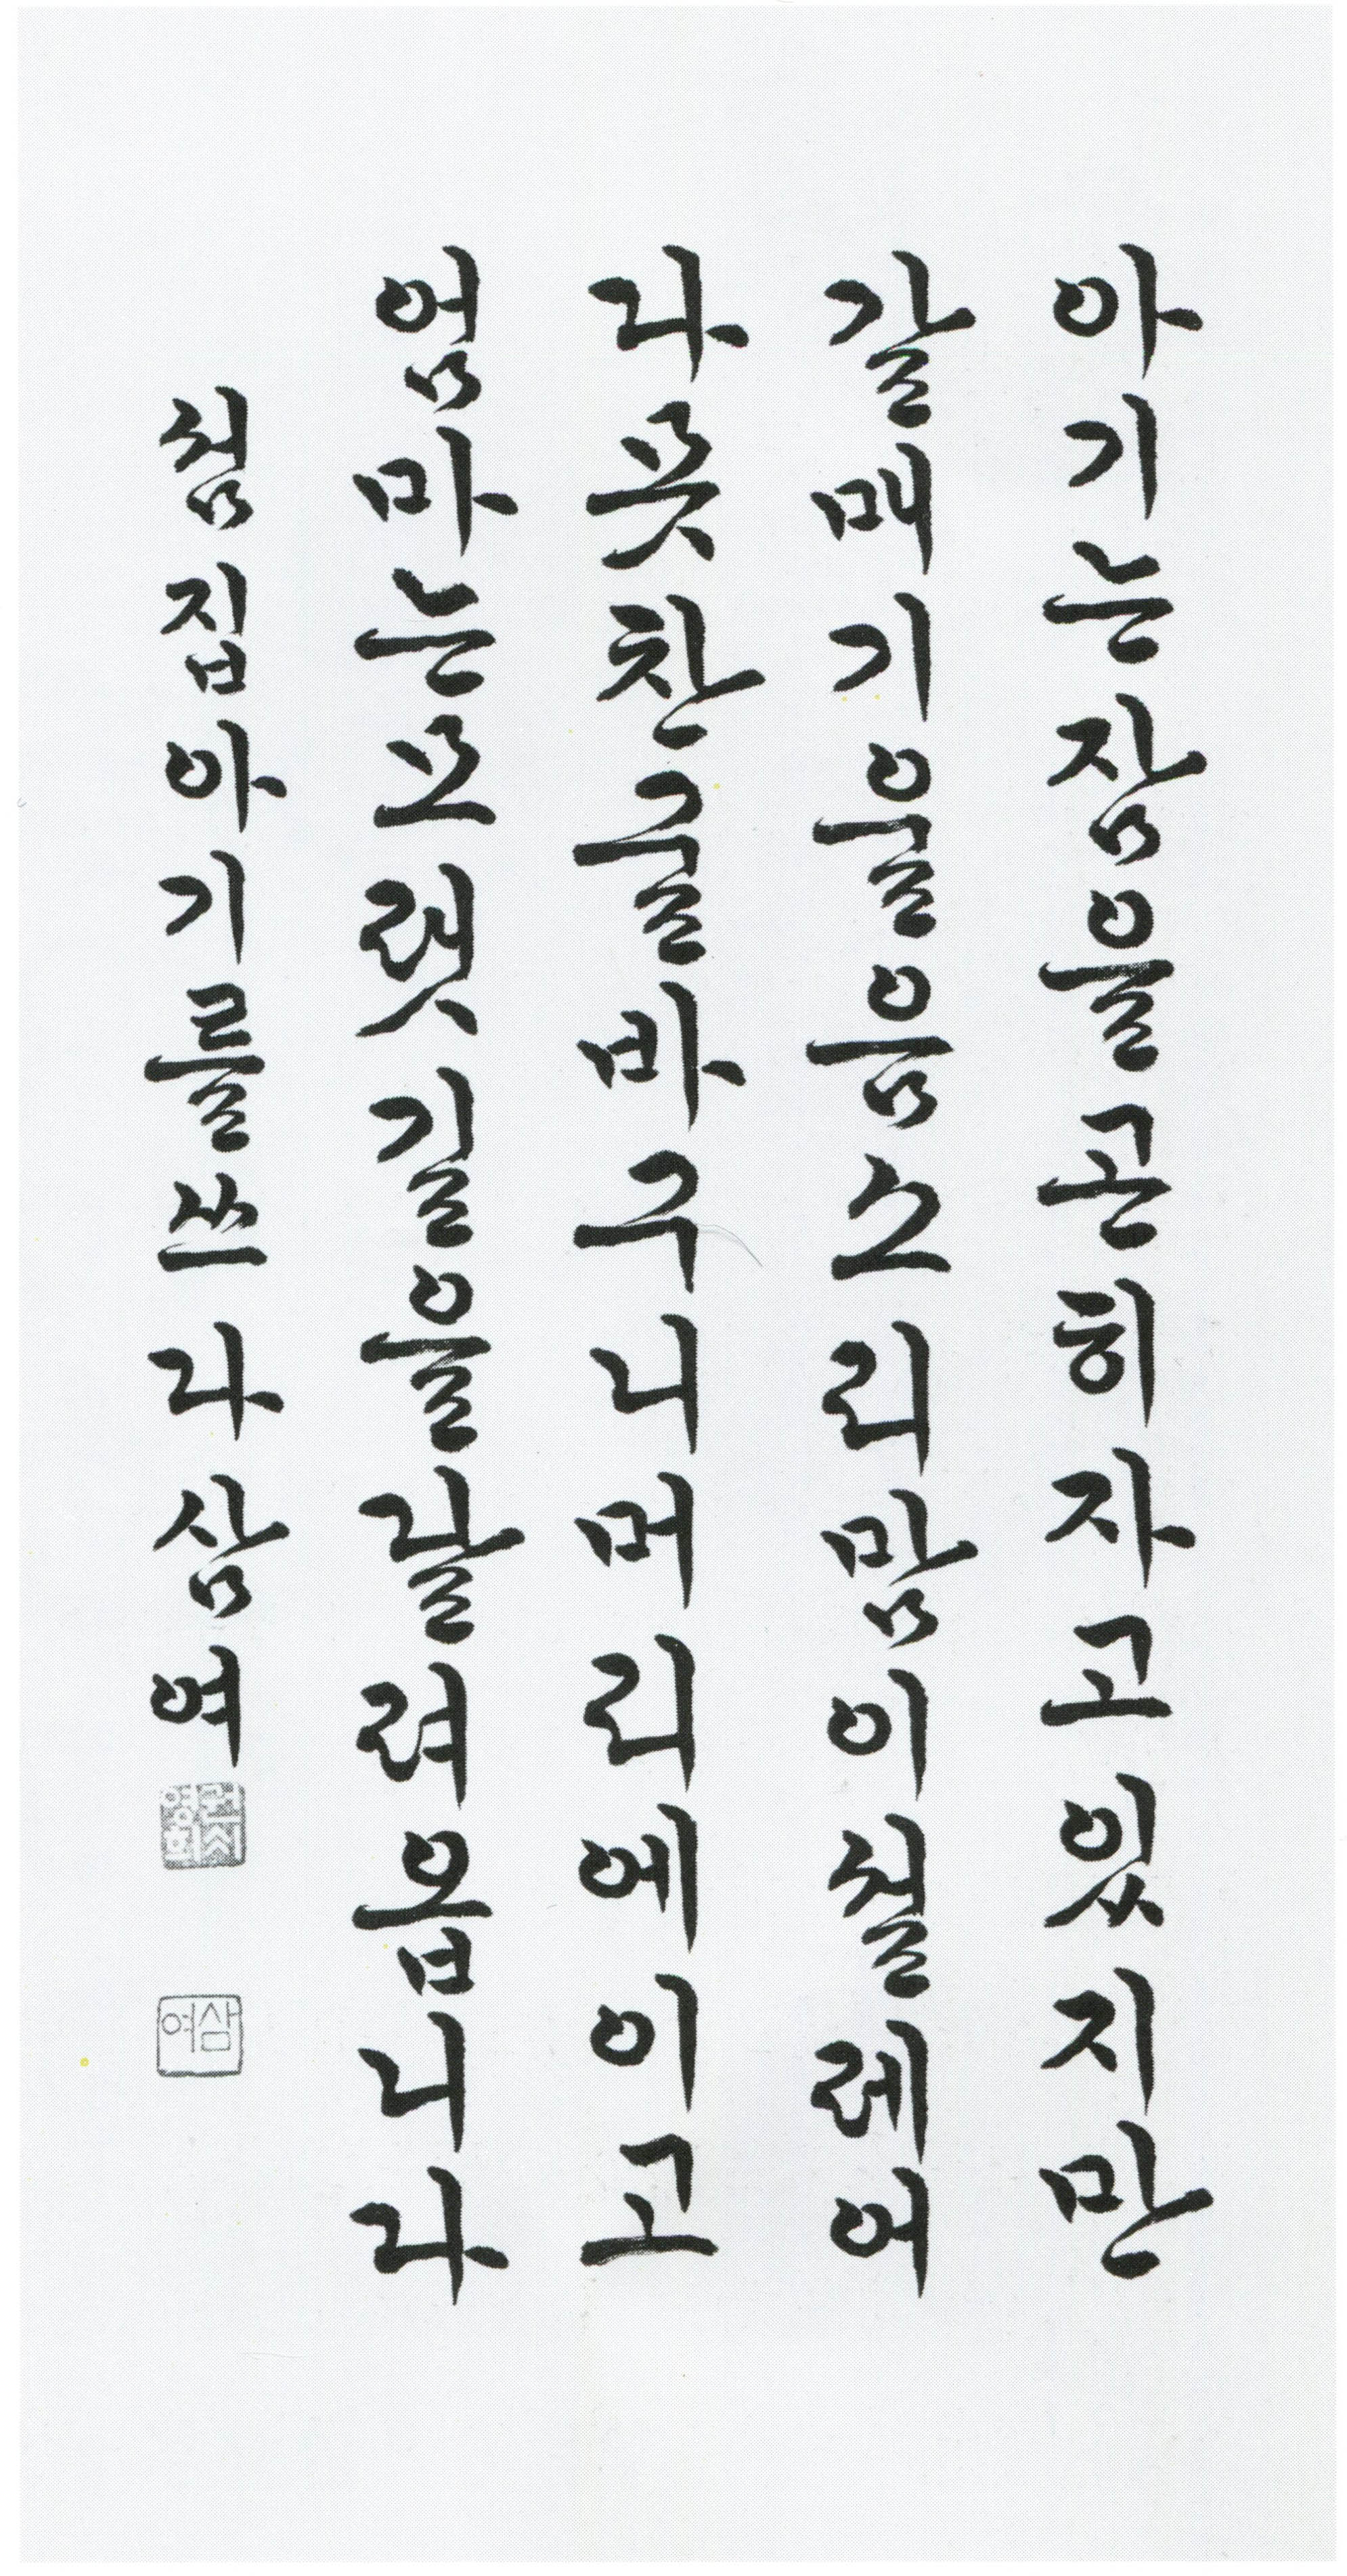 아기는잠을곤히자고있지만
갈매기울음소리맘이설레어
다못찬굴바구니머리에이고
엄마는모랫길을달려옵니다
섬집아기를쓰다삼여
영희
삼여